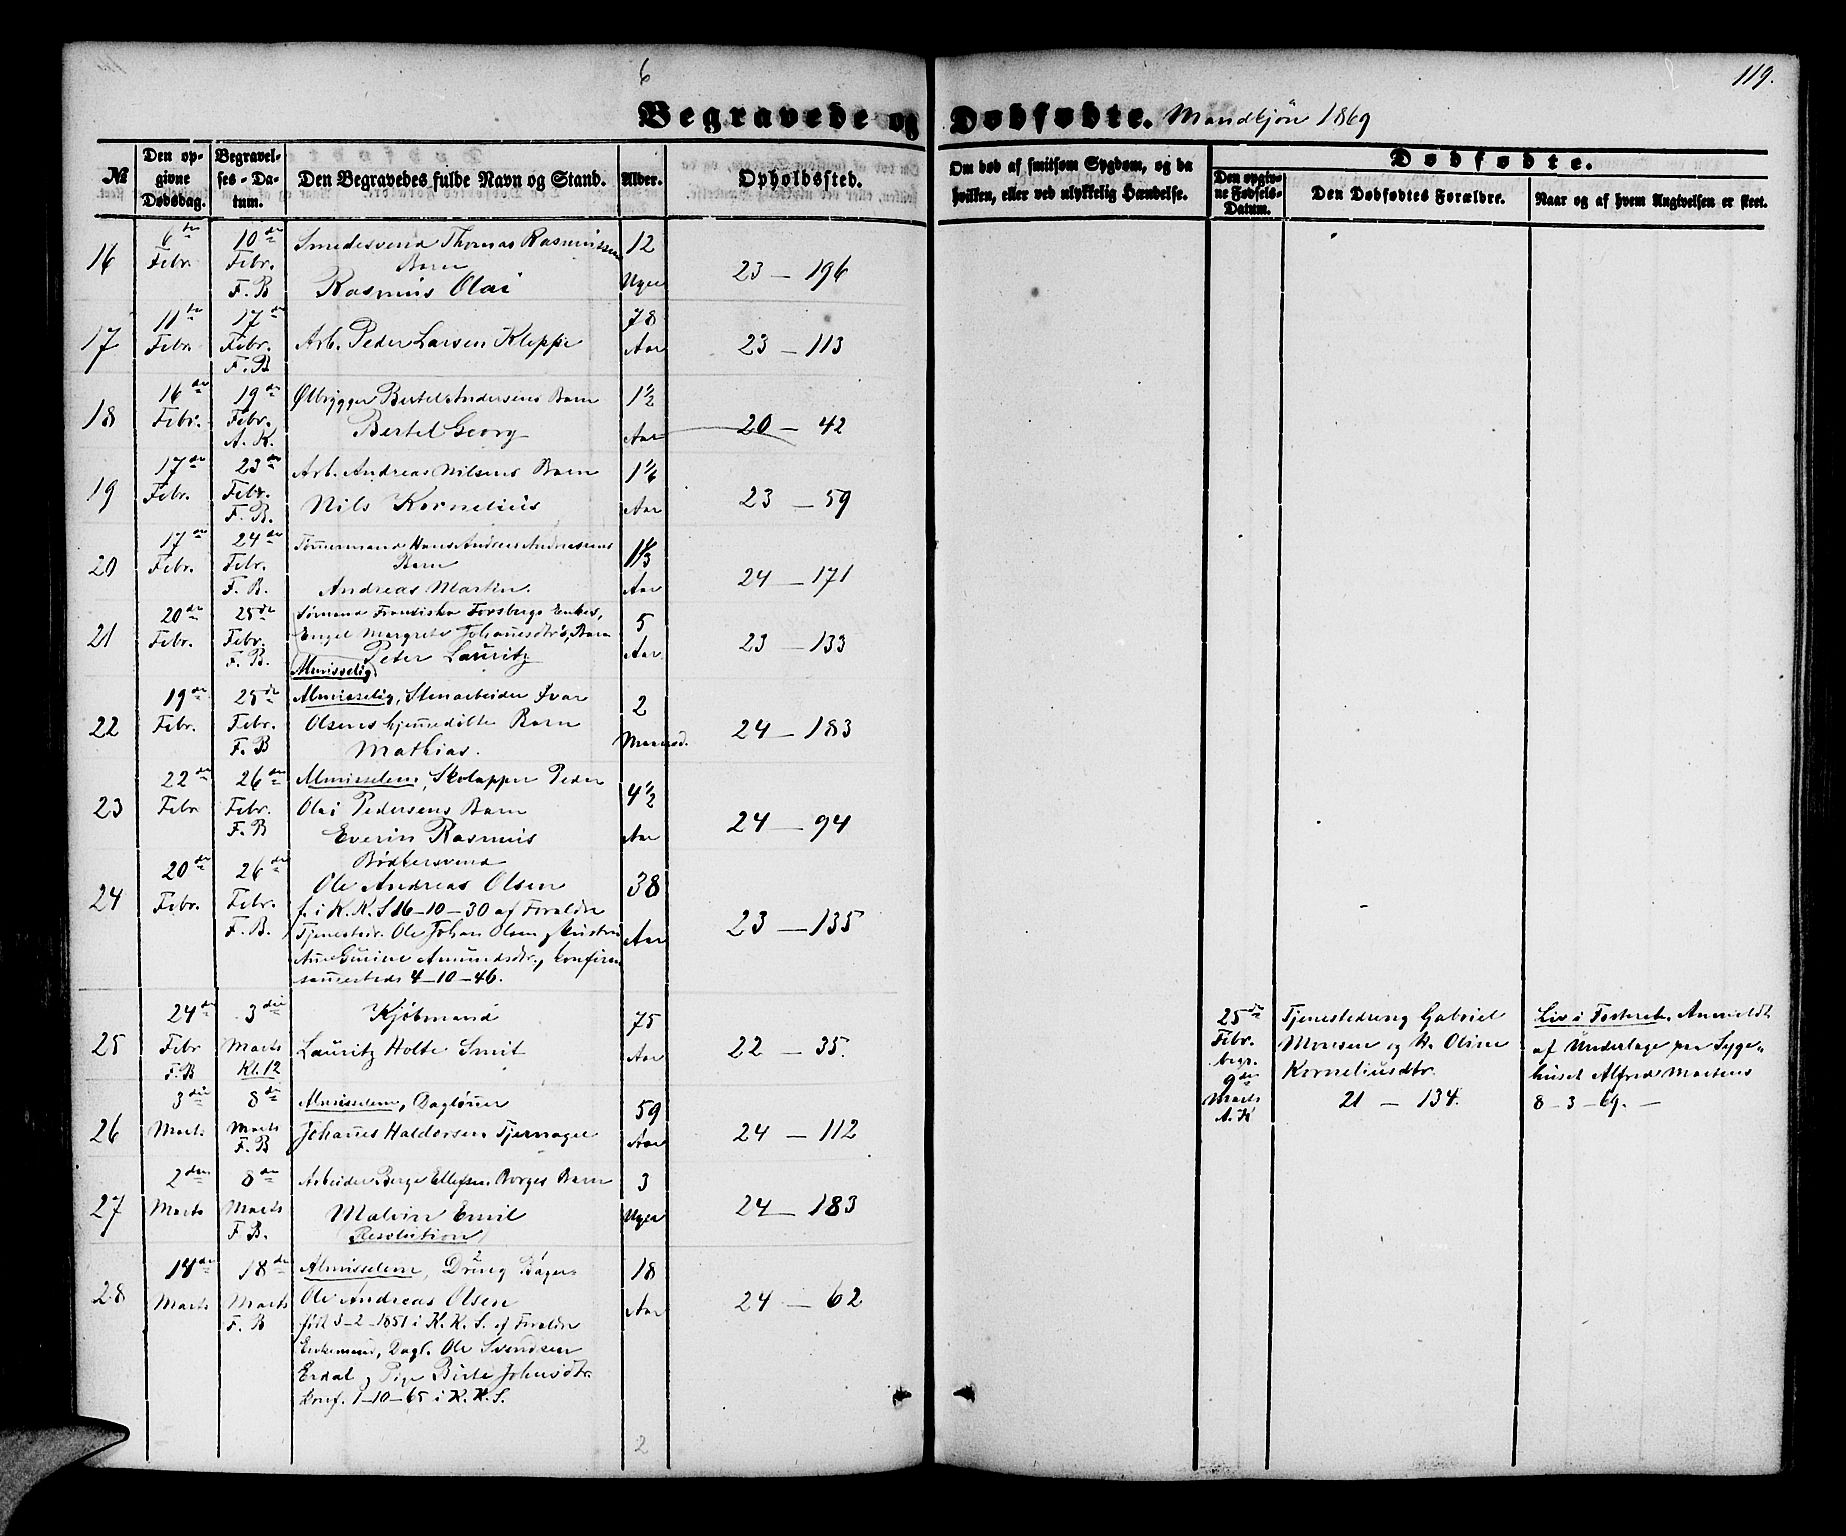 6
119.
Begravede og Dødfødte. Mandkjön 1869
№
Den opgivne Dødsdag.
Begravelses-Datum.
Den Begravedes fulde Navn og Stand.
Alder.
Opholdssted.
Om død af smitsom Sygdom, og da hvilken, eller ved ulykkelig Hændelse.
Dødfødte.
Den opgivne Fødsels-Datum.
Den Dødfødtes Forældre.
Naar og af hvem Angivelsen er skeet.
16
6te Febr.
10de Febr. F. B
Smedesvend Thomas Rasmussen
Barn
Rasmus Olai
12 Uger
23 – 196
17
11te Febr.
17de Febr. F. B
Arb. Peder Larsen Kleppe
78 Aar
23 – 113
18
16de Febr.
19de Febr. A. K.
Ølbrygger Bertel Andersens Barn
Bertel Georg
1½ Aar
20 – 42
19
17de Febr.
23de Febr. F. B.
Arb. Andreas Nilsens Barn
Nils Kornelius
1 1/6 Aar
23 – 59
20
17de Febr.
24de Febr. F. B.
Tømermand Hans Andreas Andreasens
Barn
Andreas Martin.
1 1/3 Aar
24 – 171
21
20de Febr.
25de Febr. F. B.
Sømand Frandiska Forsbergs Enkes,
Engel Margrete Johanesdtrs, Barn
Peter Lauritz
Almisselig
5 Aar
23 – 133
22
19de Febr.
25de Febr. F. B
Almisselig, Stenarbeider Ivar
Olsens hjemedøbte Barn
Mathias.
2 Maaned.
24 – 183
23
22de Febr
26de Febr. F. B
Almisselem, Skolapper Peder
Olai Pedersens Barn
Everin Rasmus
4½ Aar
24 – 94
24
20de Febr.
26de Febr. F. B.
Bødkersvend
Ole Andreas Olsen
f. i K. K. S 16–10–30 af Forældre
Tjenestedr. Ole Johan Olsen og
Ane Gurine Amundsdtr.,
4–10–46.
38 Aar
23 – 135
25
24de Febr F. B
3die Marts Kl. 12
Kjøbmand
Lauritz Holte Smit
75 Aar
22 – 35.
25de Febr. begr. 9de Marts A. K
Tjenestedreng Gabriel
Monsen og A. Oline
Korneliusdtr.
21 – 134.
Liv i Fosteret. Anmeldt
af Underlæge paa Syge-
huset Alfred Martens
8–3–69.–
26
3die Marts
8de Marts F. B
Almisselem, Dagløner
Johanes Haldorsen Tjernagel
59 Aar
24 – 112
27
2den Marts
8de Marts F. B.
Arbeider Berge Ellefsen Borges Barn
Malvin Emil
Resolution
3 Uger
24 – 183
28
14de Marts
18de Marts F. B
Almisselem, Dreng
Ole Andreas Olsen
født 3–2–1851 i K. K. S. af Forældre
Enkemand, Dagl. Ole Svendsen
Erdal og Pige Birte Johnsdtr.
konf. 1–10–65 i K. K. S.
18 Aar
24 – 62
2